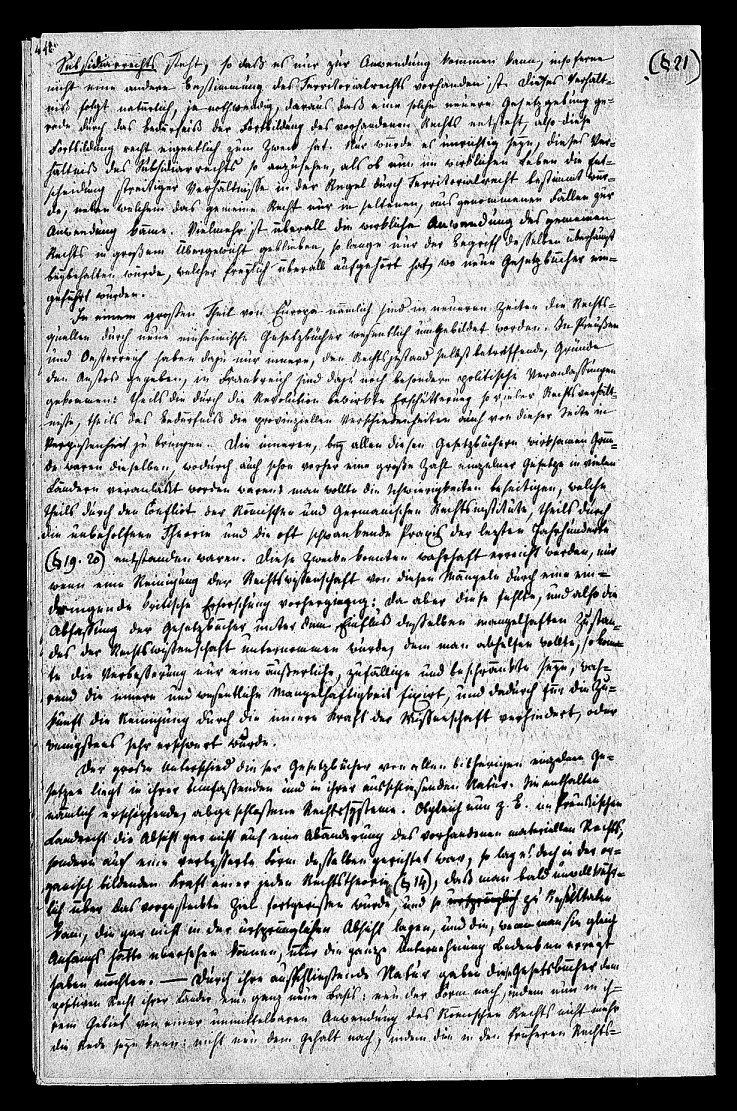 (§ 21)
Subsidiarrechts steht, so daß es nur zur Anwendung kommen kann, insoferne
nicht eine andere Bestimmung des Territorialrechts vorhanden ist. Dieses Verhält-
niß folgt natürlich, ja nothwendig, daraus daß eine solche neuere Gesetzgebung ge-
rade durch das Bedürfniß der Fortbildung des vorhandenen Rechts entsteht, also diese
Fortbildung recht eigentlich zum Zweck hat. Nur würde es unrichtig seyn, dieses Ver-
hältniß des Subsidiarrechts so anzusehen, als ob nun im wirklichen Leben die Ent-
scheidung streitiger Verhältnisse in der Regel durch Territorialrecht bestimmt wür-
de, neben welchem das gemeine Recht nur in seltenen, ausgenommenen Fällen zur
Anwendung käme. Vielmehr ist überall die wirkliche Anwendung des gemeinen
Rechts in großem Übergewicht geblieben, so lange nur der Begriff desselben überhaupt
beybehalten wurde, welcher freylich überall aufgehört hat, wo neue Gesetzbücher ein-
geführt wurden.
In einem großen Theil von Europa nämlich sind in neueren Zeiten die Rechts-
quellen durch neue einheimische Gesetzbücher wesentlich umgebildet worden. In Preußen
und Oesterreich haben dazu nur innere, den Rechtszustand selbst betreffende, Gründe
den Anstoß gegeben, in Frankreich sind dazu noch besondere politische Veranlassungen
gekommen: theils die durch die Revolution bewirkte Erschütterung so vieler Rechtsverhält-
nisse, theils das Bedürfniß die provinziellen Verschiedenheiten auch von dieser Seite in
Vergessenheit zu bringen. Die inneren, bey allen diesen Gesetzbüchern wirksamen Grün-
de waren dieselben, wodurch auch schon vorher eine große Zahl einzelner Gesetze in vielen
Ländern veranlaßt worden waren: man wollte die Schwierigkeiten beseitigen, welche
theils durch den Conflict der Römischen und Germanischen Rechtsinstitute, theils durch
die unbeholfene Theorie und die oft schwankende Praxis der letzten Jahrhunderte
(§ 19. 20) entstanden waren. Diese Zwecke konnten wahrhaft erreicht werden, nur
wenn eine Reinigung der Rechtswissenschaft von diesen Mängeln durch eine ein-
dringende kritische Erforschung vorhergieng: da aber diese fehlte, und also die
Abfassung der Gesetzbücher unter dem Einfluß desselben mangelhaften Zustan-
des der Rechtswissenschaft unternommen wurde, dem man abhelfen wollte, so konn-
te die Verbesserung nur eine äußerliche, zufällige und beschränkte seyn, wäh-
rend die innere und wesentliche Mangelhaftigkeit fixirt, und dadurch für die Zu-
kunft die Reinigung durch die innere Kraft der Wissenschaft verhindert, oder
wenigstens sehr erschwert wurde.
Der große Unterschied dieser Gesetzbücher von allen bisherigen einzelnen Ge-
setzen liegt in ihrer umfassenden und in ihrer ausschließenden Natur. Sie enthalten
nämlich erschöpfende, abgeschlossene Rechtssysteme. Obgleich nun z. B. im Preußischen
Landrecht die Absicht gar nicht auf eine Abänderung des vorhandenen materiellen Rechts,
sondern auf eine verbesserte Form desselben gerichtet war, so lag es doch in der or-
ganisch bildenden Kraft einer jeden Rechtstheorie (§ 14), daß man bald unwillkühr-
lich über das vorgesteckte Ziel fortgerissen wurde, und so zu Resultaten
kam, die gar nicht in der ursprünglichen Absicht lagen, und die, wenn man sie gleich
Anfangs hätte übersehen können, über die ganze Unternehmung Bedenken erregt
haben möchten. — Durch ihre ausschließende Natur gaben diese Gesetzbücher dem
positiven Recht ihrer Länder eine ganz neue Basis; neu der Form nach, indem nun in ih-
rem Gebiet von einer unmittelbaren Anwendung des Römischen Rechts nicht mehr
die Rede seyn kann: nicht neu dem Gehalt nach, indem die in den früheren Rechts-